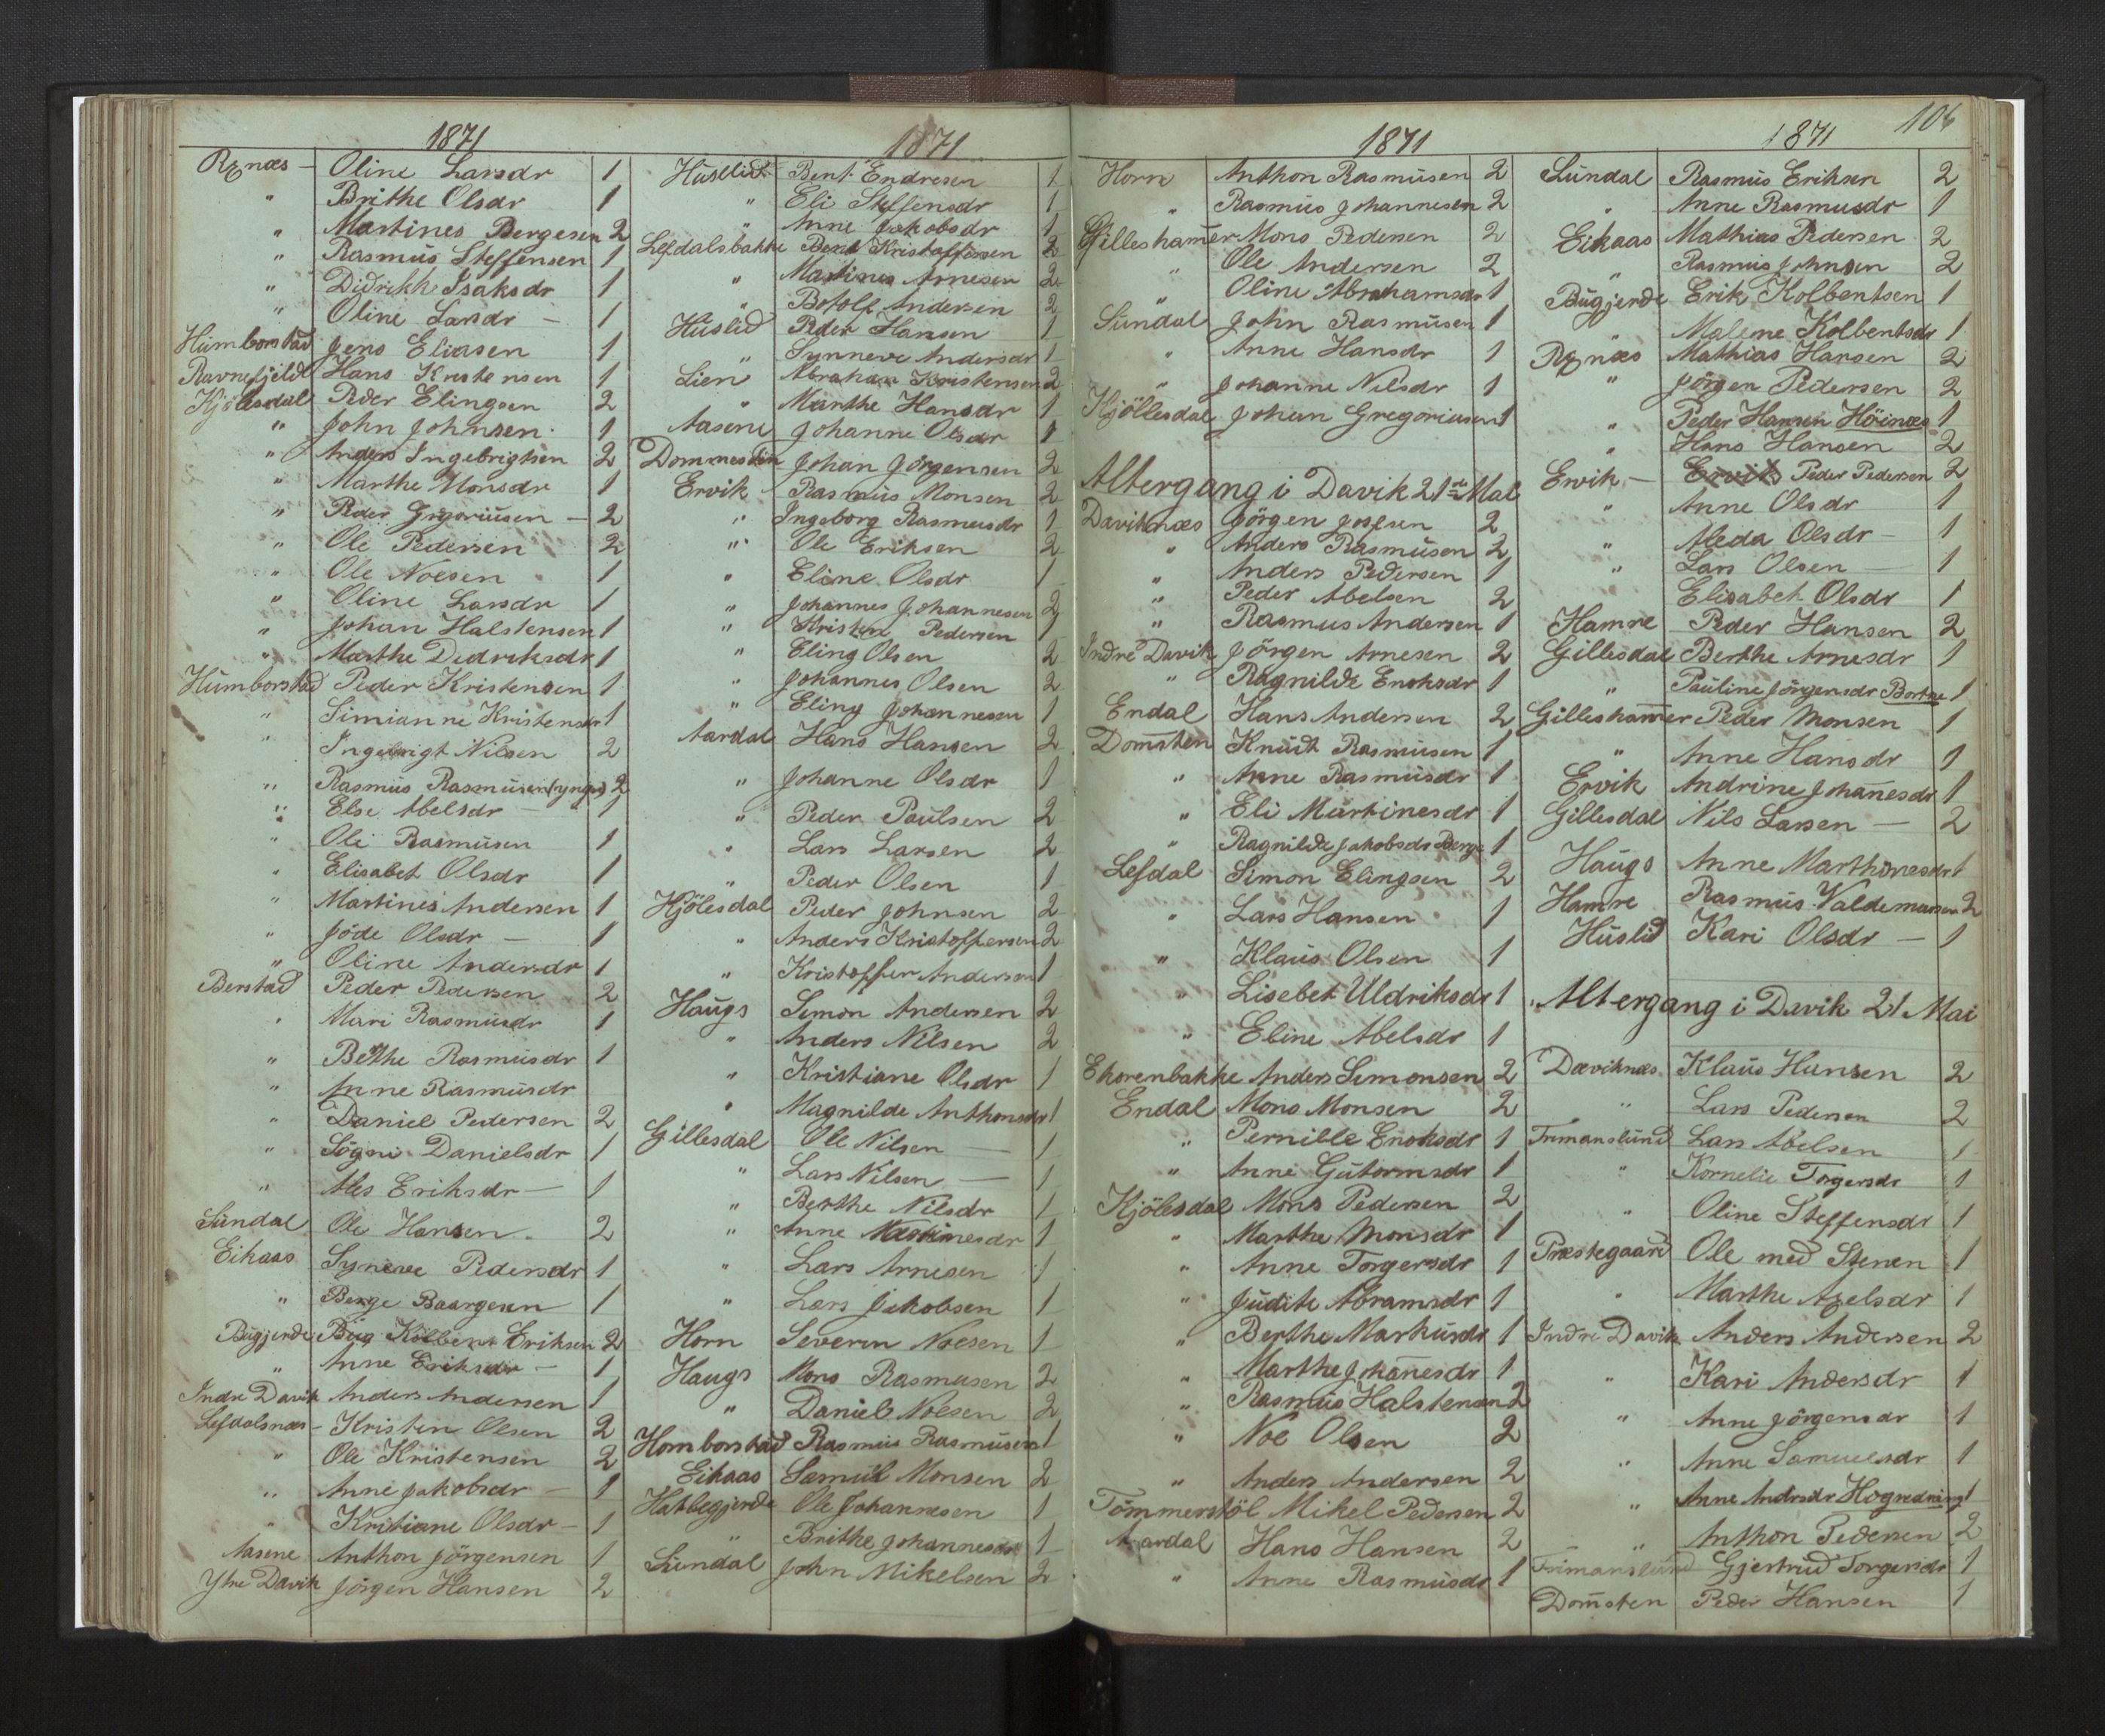 1871
Rxnæs – Oline Larsdr 1
" Brithe Olsdr 1
" Martines Bergesen 2
" Rasmus Steffensen 1
" Didrikke Isaksdr 1
" Oline Larsdr – 1
Humborstad Jens Eliasen 1
Ravnefjeld Hans Kristensen 1
Kjölesdal Peder Elingsen 2
" John Johnsen 1
" Anders Ingebrigtsen 2
" Marthe Monsdr 1
" Peder Grigoriusen – 2
" Ole Pedersen 2
" Ole Noesen 1
" Oline Larsdr 1
" Johan Halstensen 1
" Marthe Didriksdr 1
Humborstad Peder Kristensen 1
" Simianne Kristensdr 1
" Ingebrigt Nilsen 2
" Rasmus Rasmusen (yngre) 2
" Else Abelsdr – 1
" Ole Rasmusen 1
" Elisabet Olsdr 1
" Martines Andersen 1
" Jöde Olsdr – 1
" Oline Andersdr 1
Berstad Peder Pedersen 2
" Mari Rasmusdr 1
" Berthe Rasmusdr 1
" Anne Rasmusdr
" Daniel Pedersen 2
" Sögni Danielsdr 1
" Ales Eriksdr – 1
Sundal Ole Hansen 2
Eikaas Syneve Pedersdr 1
" Berge Baargesen 1
Bugjerde Kolben Eriksen 2
" Anne Eriksdr – 1
Indre Davik Anders Andersen 1
Lefdalsnæs – Kristen Olsen 2
" Ole Kristensen 2
" Anne Jakobsdr – 1
" Kritiane Olsdr – 1
Aasene Anthon Jörgensen 1
Ytre Davik Jörgen Hansen 2
1871
Huslid Bent Endresen 1
" Eli Steffensdr 1
" Anne Jakobsdr 1
Lefdalsbakke Bent Kristoffersen 2
" Martines Arnesen 2
" Botolf Andersen 2
Huslid Peder Hansen 1
" Synneve Andersdr 1
Lien Abraham Kristensen 2
" Marthe Hansdr 1
Aasene Johanne Olsdr 1
Dommesten Johan Jörgensen 2
Ervik Rasmus Monsen 2
" Ingeborg Rasmusdr 1
" Ole Eriksen 2
" Eline Olsdr 1
" Johannes Johannesen 2
" Kristen Pedersen 1
" Eling Olsen 2
" Johannes Olsen 2
" Eling Johannesen 1
Aardal Hans Hansen 2
" Johanne Olsdr 1
" Peder Paulsen 2
" Lars Larsen 2
" Peder Olsen 1
Kjölesdal Peder Johnsen 2
" Anders Kristoffersen 2
" Kristoffer Andersen 1
Haugs Simon Andersen 2
" Anders Nilsen 2
" Kristiane Olsdr 1
" Magnilde Anthonsdr 1
Gillesdal Ole Nilsen – 1
" Lars Nilsen – 1
" Berthe Nilsdr 1
" Anne Martinesdr 1
" Lars Arnesen 1
" Lars Jakobsen 1
Horn Severin Noesen 1
Haugs Mons Rasmusen 2
" Daniel Noesen 2
Homborstad Rasmus Rasmusen 1
Eikaas Samul Monsen 2
Hatlegjerde Ole Johannesen 1
" Brithe Johannesdr 1
Sundal John Mikelsen 2
1871
Horn Anthon Rasmusen 2
" Rasmus Johannesen 2
Gilleshamer Mons Pedersen 2
" Ole Andersen 2
" Oline Abrahamsdr 1
Sundal John Rasmusen 1
" Anne Hansdr 1
" Johanne Nilsdr 1
Kjöllesdal Johan Gregoriusen 1
Altergang i Davik 21de Mai
Daviknæs Jörgen Josefsen 2
" Anders Rasmusen 2
" Anders Pedersen 1
" Peder Abelsen 2
" Rasmus Andersen 1
Indre Davik Jörgen Arnesen 2
" Ragnilde Enoksdr 1
Endal Hans Andersen 2
Domsten Knudt Rasmusen 1
" Anne Rasmusdr 1
" Eli Martinesdr 1
" Ragnilde Jakobsdr Berge 1
Lefdal Simon Elingsen 2
" Lars Hansen 1
" Klaus Olsen 1
" Lisebet Uldriksdr 1
" Eline Abelsdr 1
Ekorenbakke Anders Simonsen 2
Endal Mons Monsen 2
" Pernille Enoksdr 1
" Anne Gutormsdr 1
Kjölesdal Mons Pedersen 2
" Marthe Monsdr 1
" Anne Torgersdr 1
" Judite Abramsdr 1
" Berthe Markusdr 1
" Marthe Johanesdr 1
" Rasmus Halstensen 2
" Noe Olsen 2
" Anders Andersen 2
Tömmerstöl Mikel Pedersen 2
Aardal Hans Hansen 2
" Anne Rasmusdr 1
1871
106
Sundal Rasmus Eriksen 2
" Anne Rasmusdr 1
Eikaas Mathias Pedersen 2
" Rasmus Johnsen 2
Bugjerde Erik Kolbentsen 1
" Malene Kolbentsdr 1
Rxnæs Mathias Hansen 2
" Jörgen Pedersen 2
" Peder Hansen Höinæs 1
" Hans Hansen 2
Ervik – Ervik Peder Pedersen 2
" Anne Olsdr 1
" Aleda Olsdr – 1
" Lars Olsen – 1
Elisabet Olsdr 1
Hamre Peder Hansen 2
Gillesdal Berthe Arnesdr 1
" Pauline Jörgensdr 1
Gilleshamer Peder Monsen 1
" Anne Hansdr 1
Ervik Andrine Johanesdr 1
Gillesdal Nils Larsen – 2
Haugs Anne Marthinesdr 1
Hamre Rasmus Valdemarsen 2
Huslid Kari Olsdr – 1
Altergang i Davik 21 Mai
Daviknæs Klaus Hansen 2
" Lars Pedersen 2
Frimanslund Lars Abelsen 1
" Kornelie Torgersdr 1
" Oline Steffensdr 1
Præstegaard Ole med Stenen 1
" Marthe Axelsdr 1
Indre Davik Anders Andersen 2
" Kari Andersdr 1
" Anne Jörgensdr 1
" Anne Samuelsdr 1
" Anne Andrsdr 1
" Anthon Pedersen 2
Frimanslund Gjertrud Torgersdr 1
Domsten Peder Hansen 1